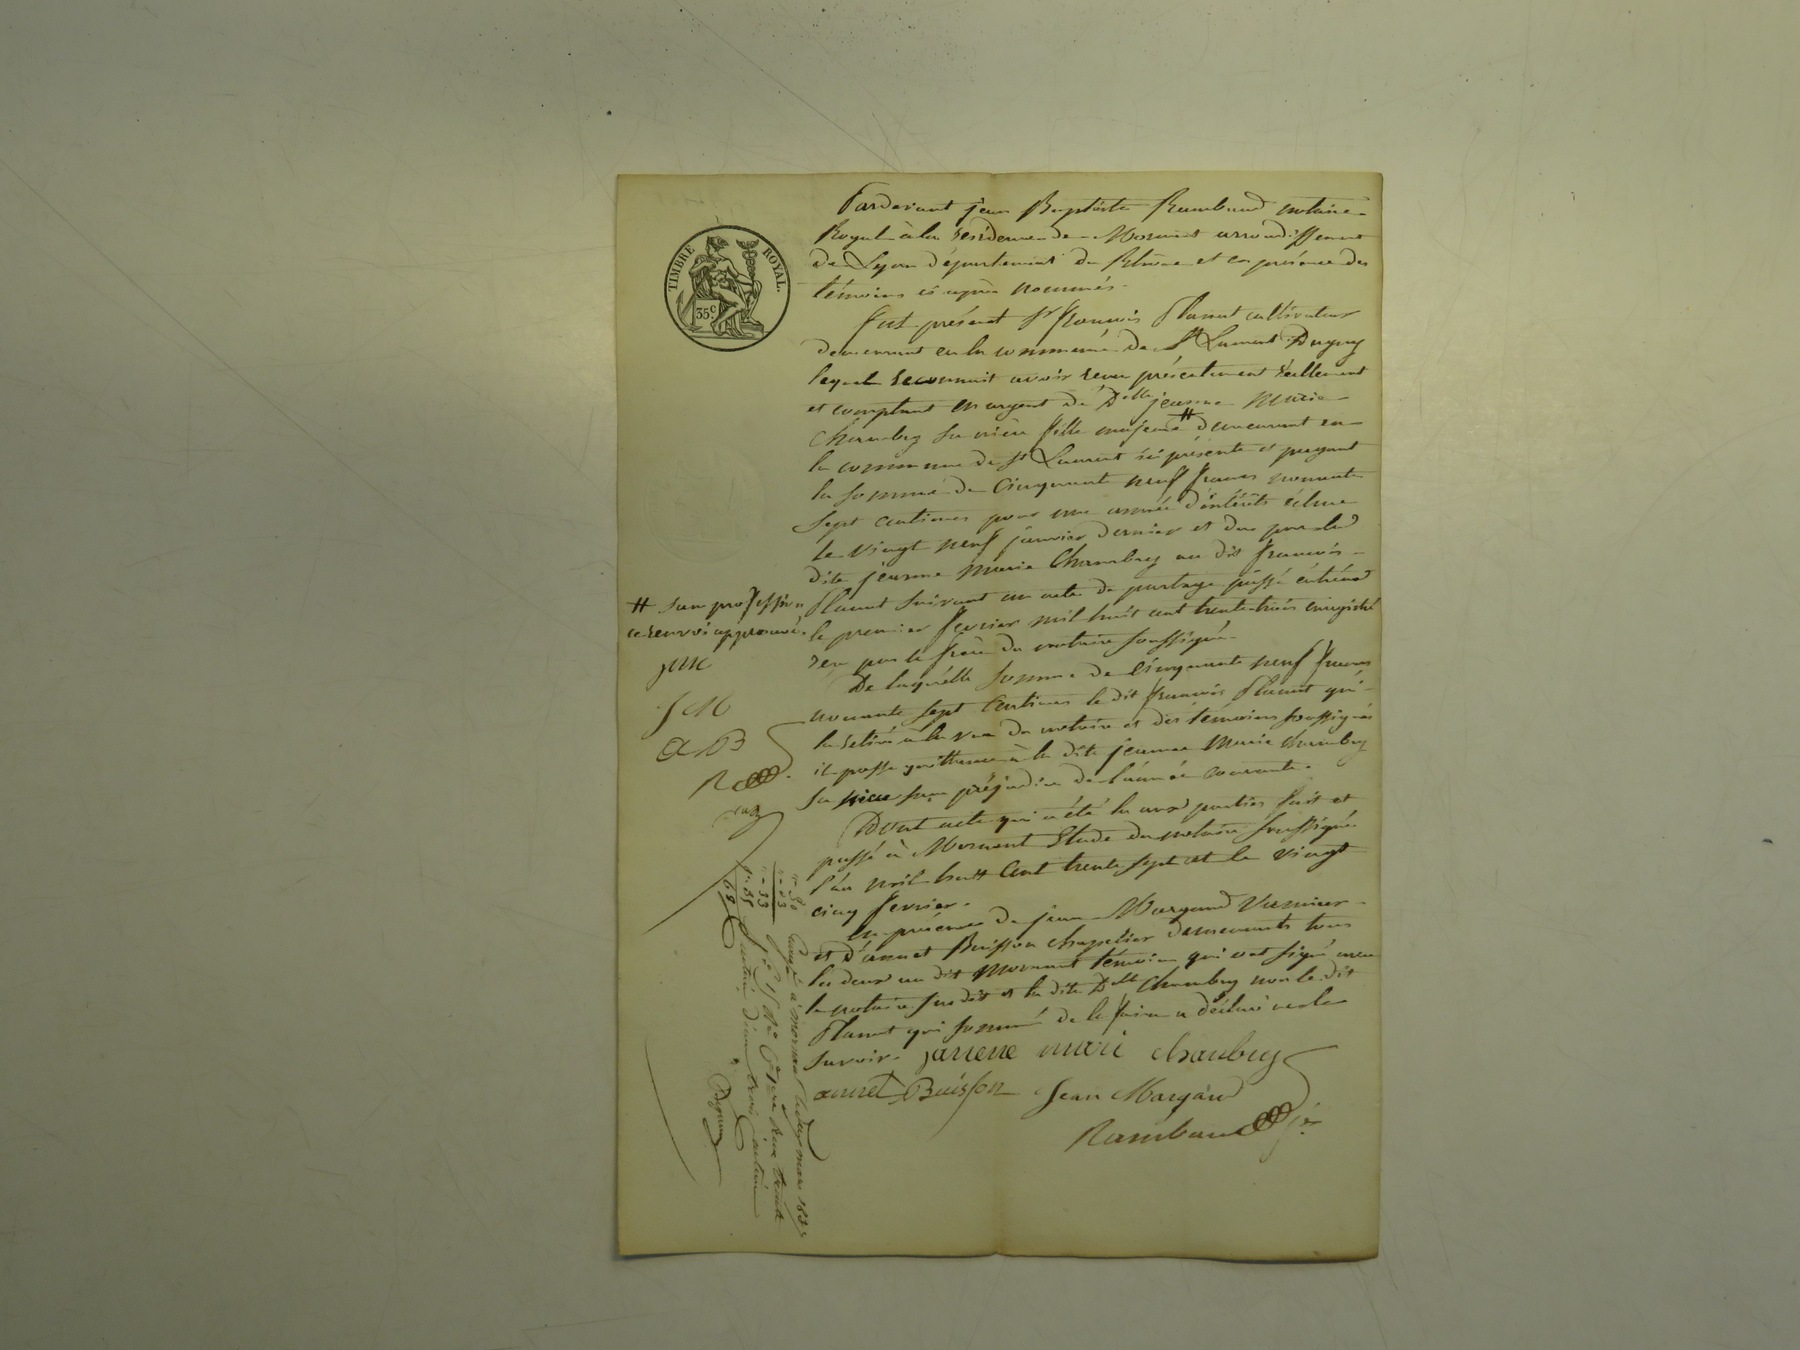 TIMBRE ROYAL.
35 c.
Pardevant jean Baptiste Rambaud notaire
Royal à la résidence de Mornant arrondissement
de Lyon département du Rhône et en présence des
témoins ci après nommés.
fut présent Sr francois Planut cultivateur
demeurant en la commune de St Laurent Dagny
lequel reconnait avoir reçu présentement réellement
et comptant en argent de Delle jeanne Marie
Chambry sa nièce fille majeure # demeurant en
la commune de St Laurent ici présente et payant
la somme de Cinquante neuf francs nonante
sept centimes pour une année d'intérêts échue
le vingt neuf janvier dernier et due par la
dite jeanne Marie Chambry au dit francois
Planut suivant un acte de partage passé
le premier fevrier mil huit cent trente trois enregistré
reçu par le frère du notaire soussigné.
De laquelle somme de cinquante neuf francs
nonante sept Centimes le dit francois Planut qui
la retirée à la vue du notaire et des témoins soussignés
il passe quittance à la dite jeanne Marie chambry
sa nièce sans préjudice de l'année courante.
Dont acte qui a été lu aux parties fait et
passé à Mornant Etude du notaire soussigné
l'an mil huit Cent trente sept et le vingt
cinq fevrier.
En présence de jean Margand
et d'annet Buisson chapelier demeurants tous
les deux au dit Mornant témoins qui ont signé avec
le notaire susdit et la dite Delle Chambry non le dit
Planut qui sommé de le faire a déclaré ne le
savoir.
janene mari chanbry
annet Buisson Jean Margand
Rambaud jne
# sans profession
ce renvoi approuvé.
jmc
J M
a B
R